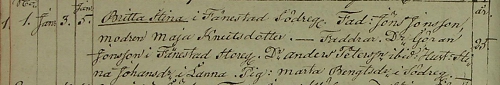 1862
1. 1. Jan. 3. Jan. 5. Britta Stina i Fånestad Södreg. Fad: Jöns Jönsson,
modren Maja Knutsdotter. — Faddrar. Dr. Göran
Jönsson i Fånestad Storeg. Dr. Anders Peterss. ibid. Hust: Sti- 25.
na Johansd. i Länna. Pig: Marta Bengtsd. i Södreg.
år.